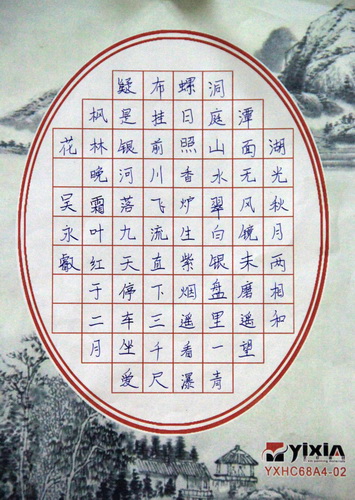 湖光秋月两相和
潭面无风镜未磨遥望
洞庭山水翠白银盘里一青
螺日照香炉生紫烟遥看瀑
布挂前川飞流直下三千尺
疑是银河落九天停车坐爱
枫林晚霜叶红于二月
花 吴永叡
yixin
YXHC68A4-02